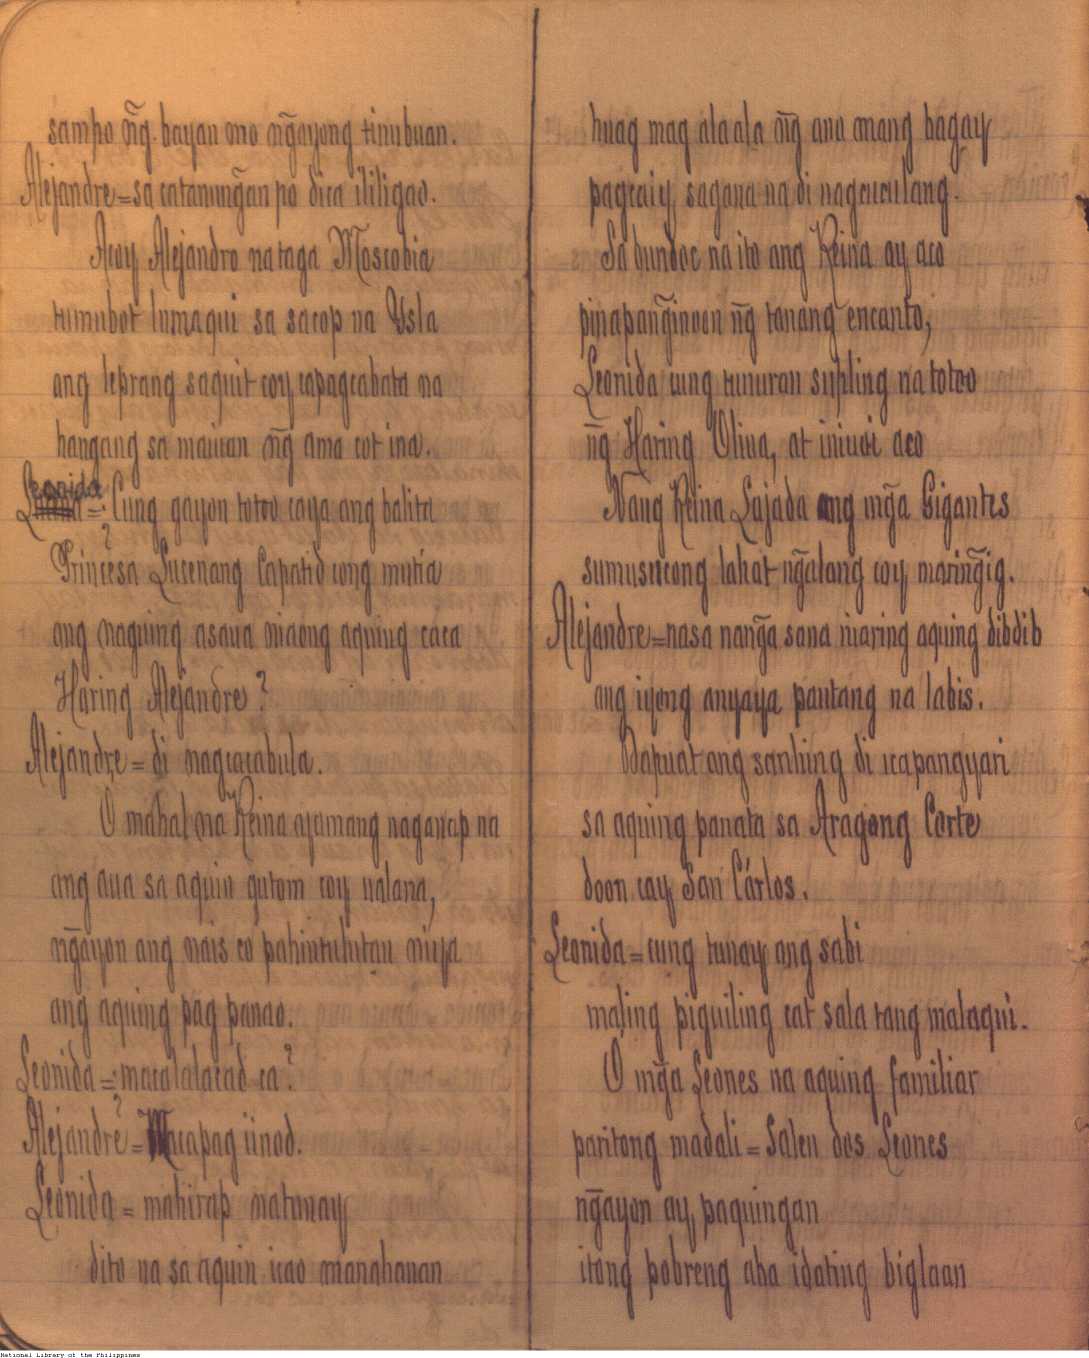 sampo n͠g bayan mo n͠gayong tinubuan.
Alejandre = sa catanun͠gan po dica ililigao.
Acoy Alejandro na taga Moscobia
tumubot lumaqui sa sacop na Ysla
ang leprang saquit coy capagcabata na
hangang sa maiuan n͠g ama cot ina.
Leonida = Cung gayon totoo caya ang balita
Princesa Lucenang Capatid cong mutia
ang naguing asaua niaong aquing caca
Haring Alejandre?
Alejandre = di nagcacabula.
O mahal na Reina ayamang naganap na
ang aua sa aquin gutom coy nalana,
n͠gayon ang nais co pahintulutan niya
ang aquing pag panao.
Leonida = macalalacad ca?
Alejandre = Macapag iinod.
Leonida = mahirap matunay
dito na sa aquin icao manahanan
huag mag alaala n͠g ano mang bagay
pagcaiy sagana na di nagcuculang.
Sa bundoc na ito ang Reina ay aco
pinapan͠ginoon n͠g tanang encanto,
Leonida cung tunuran supling na totoo
n͠g Haring Oliva, at iniuoi aco
Nang Reina Lajada ang m͠ga Gigantes
sumusucong lahat n͠galang coy marin͠gig.
Alejandre = nasa nan͠ga sana niaring aquing dibdib
ang iyong anyaya pautang na labis.
Dapuat ang sanhing di icapangyari
sa aquing panata sa Aragong Corte
doon cay San Cárlos.
Leonida = cung tunay ang sabi
maling piguiling cat sala tang malaqui.
O m͠ga Leones na aquing familiar
paritong madali = Salen dos Leones
n͠gayon ay paquingan
itong pobreng aba idating biglaan
National Library of the Philippines